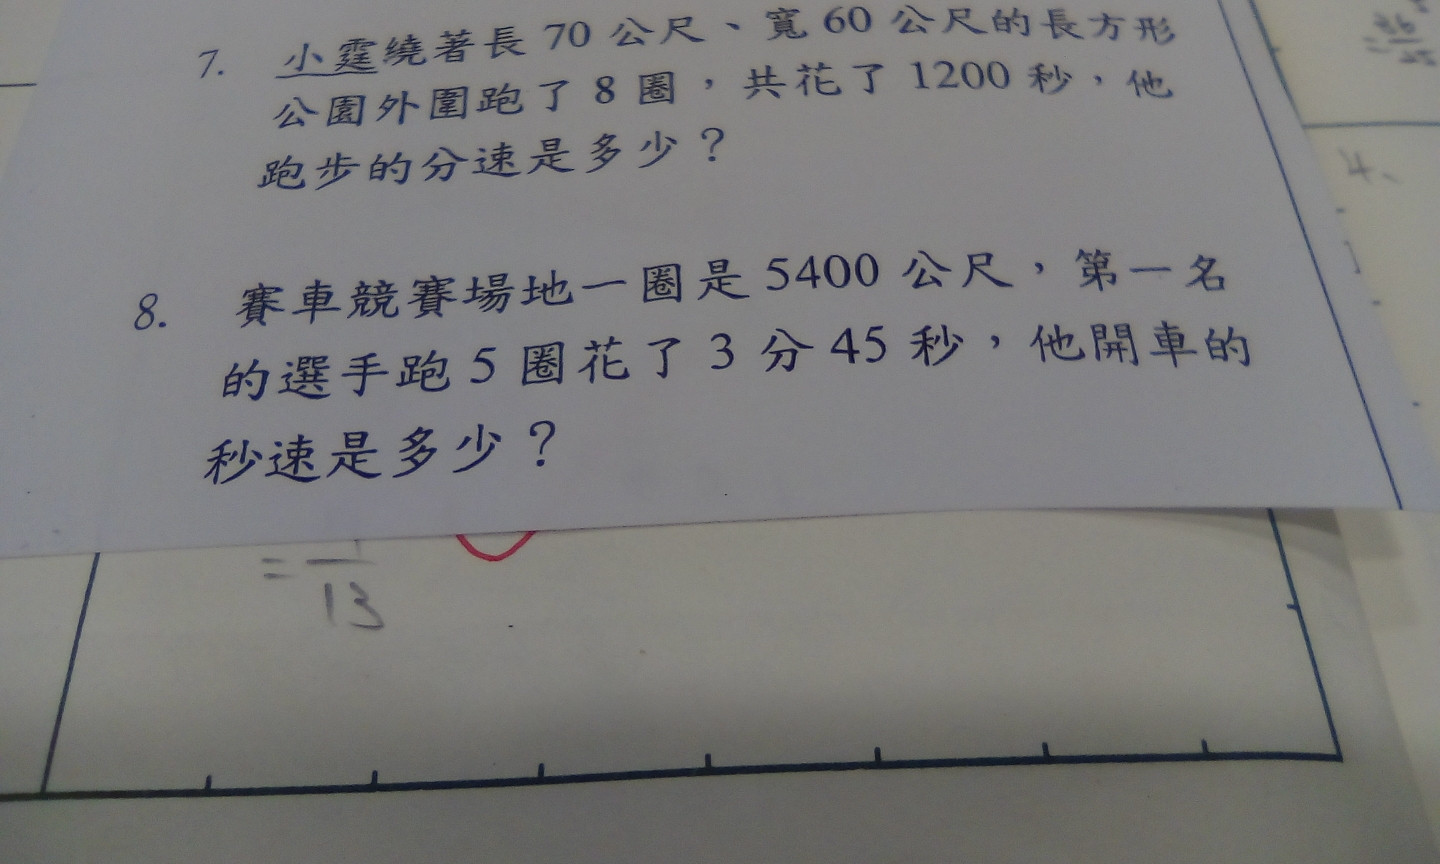 7. 小霆繞著長 70 公尺、寬 60 公尺的長方形
公園外圍跑了 8 圈，共花了 1200 秒，他
跑步的分速是多少？
8. 賽車競賽場地一圈是 5400 公尺，第一名
的選手跑 5 圈花了 3 分 45 秒，他開車的
秒速是多少？
=
13
4.